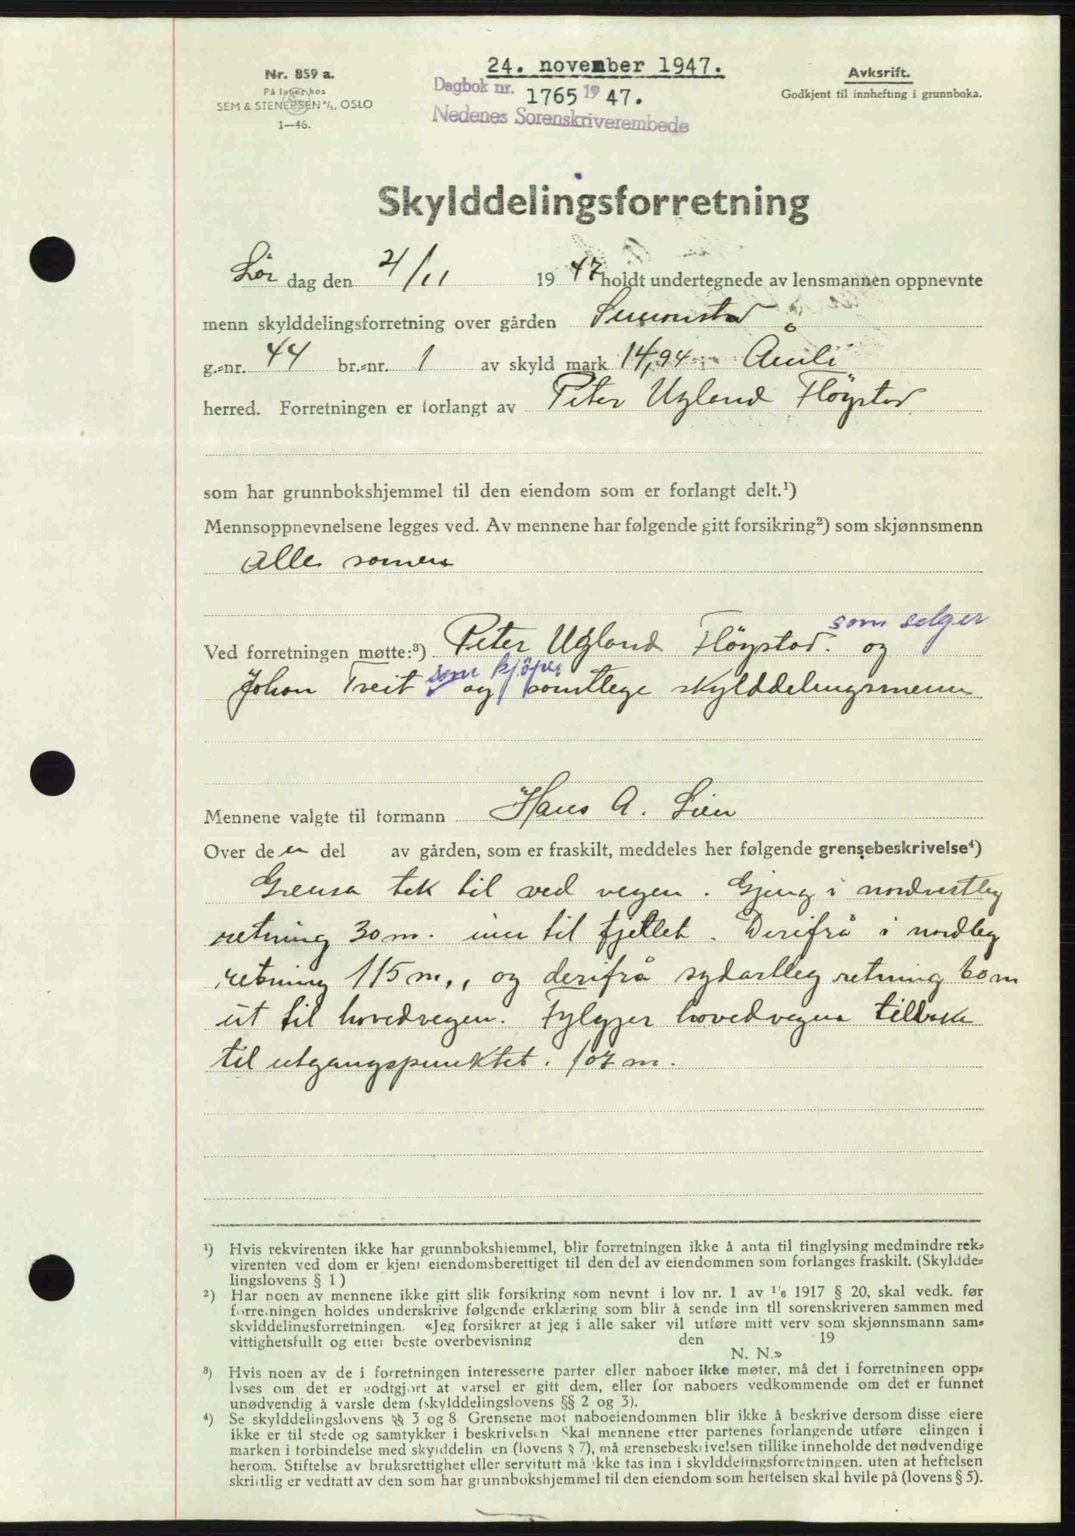 24. november 1947.
Nr. 859 a.
På lager hos
SEM & STENERSEN A/S. OSLO
1—46.
Dagbok nr. 1765 19 47.
Nedenes Sorenskriverembede
Avksrift.
Godkjent til innhefting i grunnboka.
Skylddelingsforretning
Lør dag den 21/11 19 47 holdt undertegnede av lensmannen oppnevnte
menn skylddelingsforretning over gården Simonstad
g.-nr. 44 br.-nr. 1 av skyld mark 14,94 i Åmli
herred. Forretningen er forlangt av Peter Ugland Fløystad
som har grunnbokshjemmel til den eiendom som er forlangt delt.¹)
Mennsoppnevnelsene legges ved. Av mennene har følgende gitt forsikring²) som skjønnsmenn
alle saman
som selger
Ved forretningen møtte:³) Peter Ugland Fløystad. og
som kjøper
Johan Treit og samtlege skylddelingsmenn
Mennene valgte til formann Hans A. Lien
Over de n del av gården, som er fraskilt, meddeles her følgende grensebeskrivelse⁴)
Grensa tek til ved vegen. Gjeng i nordvestleg
retning 30 m. inn til fjellet. Derifrå i nordleg
retning 115 m., og derifrå sydaustleg retning 60 m
ut til hovedvegen. Fylgjer hovedvegen tilbake
til utgangspunktet. 107 m.
¹) Hvis rekvirenten ikke har grunnbokshjemmel, blir forretningen ikke å anta til tinglysing medmindre rek-
virenten ved dom er kjent eiendomsberettiget til den del av eiendommen som forlanges fraskilt. (Skyldde-
lingslovens § 1)
²) Har noen av mennene ikke gitt slik forsikring som nevnt i lov nr. 1 av 1/6 1917 § 20, skal vedk. før
forretningen holdes underskrive følgende erklæring som blir å sende inn til sorenskriveren sammen med
skylddelingsforretningen. «Jeg forsikrer at jeg i alle saker vil utføre mitt verv som skjønnsmann sam-
vittighetsfullt og etter beste overbevisning den 19
N. N.»
³) Hvis noen av de i forretningen interesserte parter eller naboer ikke møter, må det i forretningen opp-
lyses om det er godtgjort at varsel er gitt dem, eller for naboers vedkommende om det er funnet
unødvendig å varsle dem (skylddelingslovens §§ 2 og 3).
⁴) Se skylddelingslovens §§ 3 og 8. Grensene mot naboeiendommen blir ikke å beskrive dersom disse eiere
ikke er til stede og samtykker i beskrivelsen. Skal mennene etter partenes forlangende utføre elingen i
marken i forbindelse med skylddelin en (lovens § 7), må grensebeskrivelsen tillike inneholde det nødvendige
herom. Stiftelse av bruksrettighet eller servitutt må ikke tas inn i skylddelingsforretningen, uten at heftelsen
skriftlig er vedtatt av den som har grunnbokshjemmel til den eiendom som heftelsen skal hvile på (lovens § 5).